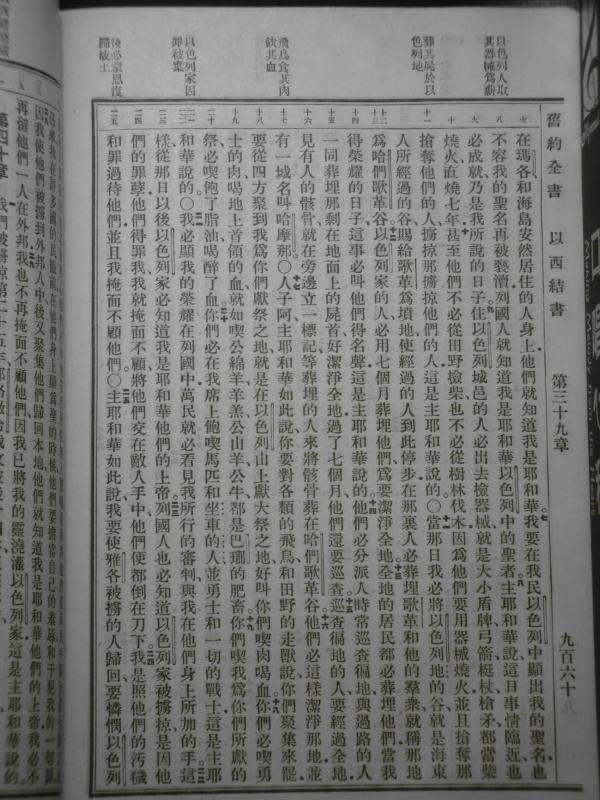 舊約全書　以西結書　第三十九章　九百六十九
以色列人取其器械爲薪
葬其屍於以色列地
飛鳥食其肉飲其血
以色列家因罪被棄
後必蒙恩復歸故土
在瑪各和海島安然居住的人身上他們就知道我是耶和華我要在我民以色列中顯出我的聖名也
不容我的聖名再被褻瀆列國人就知道我是耶和華以色列中的聖者主耶和華說這日事情臨近也
必成就乃是我所說的日子住以色列城邑的人必出去撿器械就是大小盾牌弓箭梃杖槍矛都當柴
燒火直燒七年甚至他們不必從田野撿柴也不必從樹林伐木因爲他們要用器械燒火並且搶奪那
搶奪他們的人擄掠那擄掠他們的人這是主耶和華說的〇當那日我必將以色列地的谷就是海東
人所經過的谷賜給歌革爲墳地使經過的人到此停步在那裏人必葬埋歌革和他的羣衆就稱那地
爲哈們歌革谷以色列家的人必用七個月葬埋他們爲要潔淨全地全地的居民都必葬埋他們當我
得榮耀的日子這事必叫他們得名聲這是主耶和華說的他們必分派人時常巡查徧地與過路的人
一同葬埋那剩在地面上的屍首好潔淨全地過了七個月他們還要巡查巡查徧地的人要經過全地
見有人的骸骨就在旁邊立一標記等葬埋的人來將骸骨葬在哈們歌革谷他們必這樣潔淨那地並
有一城名叫哈摩那〇人子阿主耶和華如此說你要對各類的飛鳥和田野的走獸說你們聚集來罷
要從四方聚到我爲你們獻祭之地就是在以色列山上獻大祭之地好叫你們喫肉喝血你們必喫勇
士的肉喝地上首領的血就如喫公綿羊羊羔公山羊公牛都是巴珊的肥畜你們喫我爲你們所獻的
祭必喫飽了脂油喝醉了血你們必在我席上飽喫馬匹和坐車的人並勇士和一切的戰士這是主耶
和華說的〇我必顯我的榮耀在列國中萬民就必看見我所行的審判與我在他們身上所加的手這
樣從那日以後以色列家必知道我是耶和華他們的上帝列國人也必知道以色列家被擄掠是因他
們的罪孽他們得罪我我就掩面不顧將他們交在敵人手中他們便都倒在刀下我是照他們的汚穢
和罪過待他們並且我掩面不顧他們〇主耶和華如此說我要使雅各被擄的人歸回要憐憫以色列
因我使他們被擄到外邦人中後又聚集他們歸回本地他們就知道我是耶和華他們的上帝我必不
再留他們一人在外邦我也不再掩面不顧他們因我已將我的靈澆灌以色列家這是主耶和華說的
第四十章